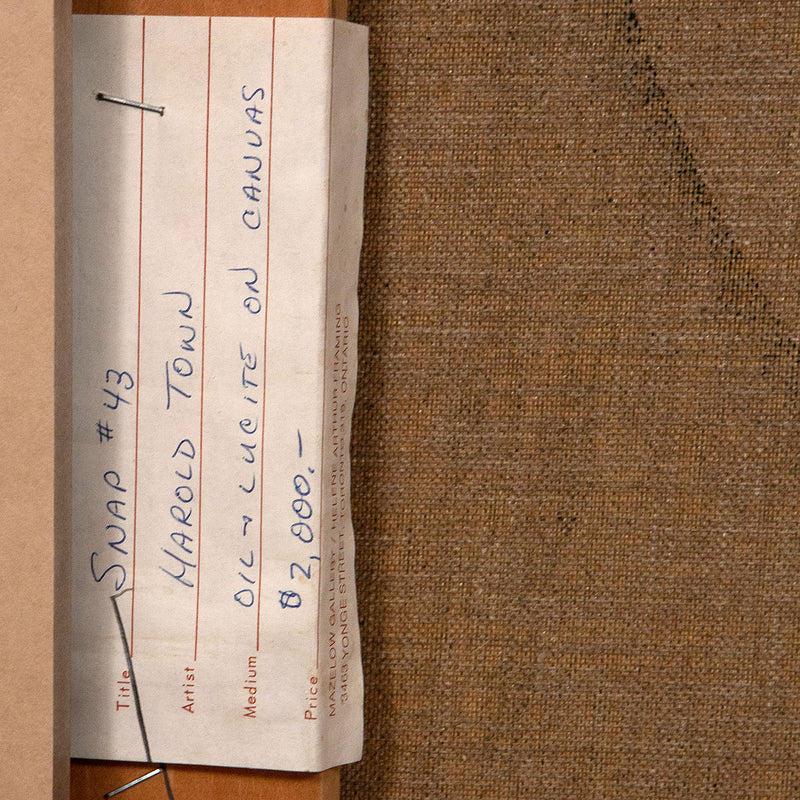 Title SNAP #43
Artist HAROLD TOWN
Medium OIL + LUCITE ON CANVAS
Price $2,000.—
MAZELOW GALLERY / HELENE ARTHUR FRAMING
3463 YONGE STREET, TORONTO 319, ONTARIO